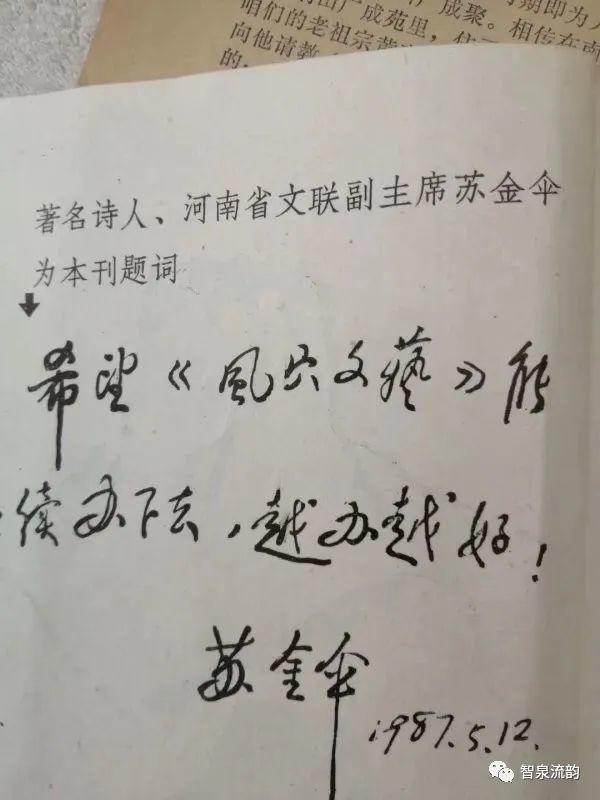 成苑里，
成聚。相传在南
咱们的老祖宗
向他请教
的
著名诗人、河南省文联副主席苏金伞
为本刊题词
希望《風穴文藝》能
续办下去，越办越好！
苏金伞
1987.5.12.
智泉流韵